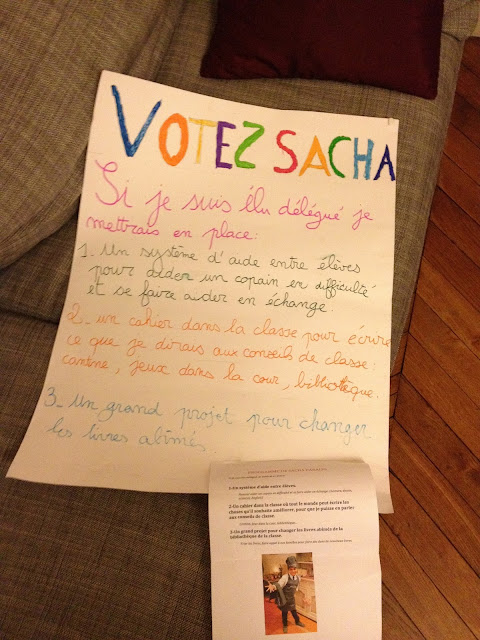 VOTEZ SACHA
Si je suis élu délégué je
mettrais en place:
1. Un système d'aide entre élèves
pour aider un copain en difficulté
et se faire aider en échange.
2_ un cahier dans la classe pour écrire
ce que je dirais aux conseils de classe:
cantine, jeux dans la cour, bibliothèque.
3_ Un grand projet pour changer
les livres abîmés.
1-Un système d'aide entre élèves.
2-Un cahier dans la classe où tout le monde peut écrire les
choses qu'il souhaite améliorer, pour que je puisse en parler
aux conseils de classe.
3-Un grand projet pour changer les livres abîmés de la
bibliothèque de la classe.